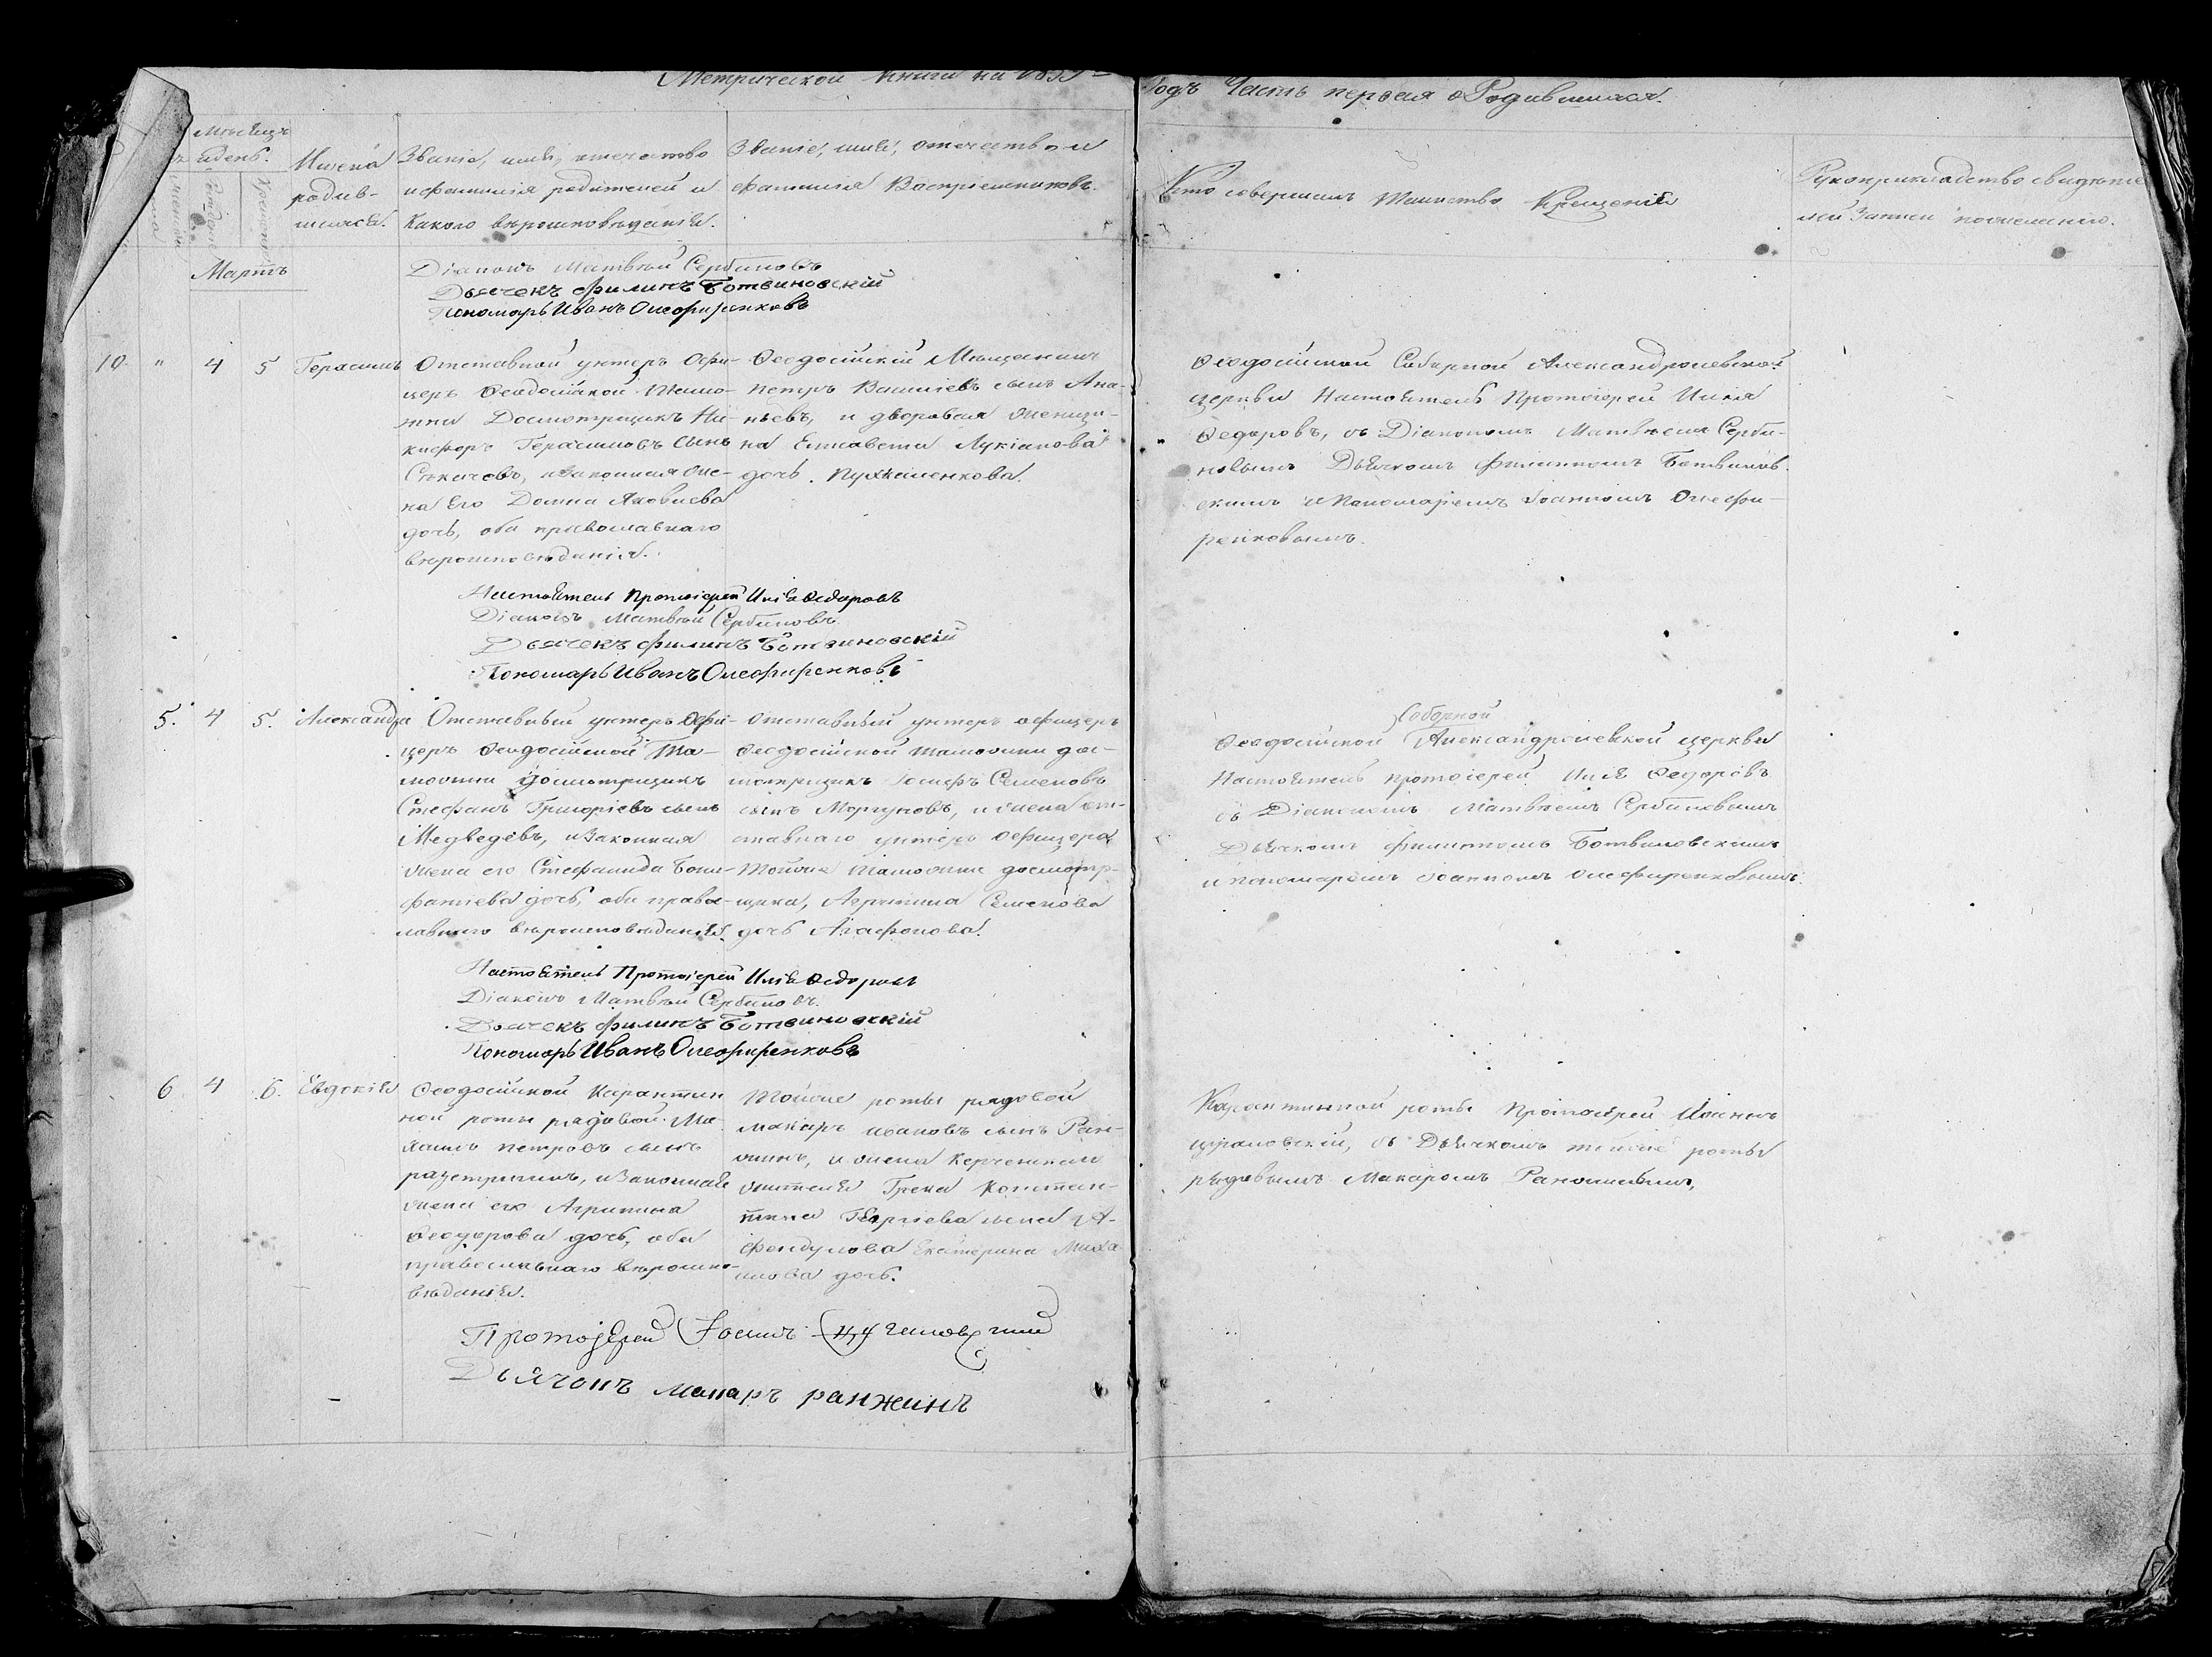 Метрической книги на
Годъ Часть первая о Родившихся.
Мѣсяцъ
и день.
Имена
родив-
шихся.
Званіе, имя, отчество
и фамилія родителей и
какого вѣроисповѣданія.
Званіе, имя, отечество и
фамилія Воспріемниковъ.
Кто совершалъ таинство Крещенія
Рукоприкладство свидѣте
лей записи по желанію.
Мартъ
Діаконъ Матвѣй Сербиновъ
Дьячекъ Филипъ Ботвиновскій
Пономарь Иванъ Олефиренковъ
10. " 4 5 Герасимъ
Отставной унтеръ Офи-
церъ Феодосійской тамо-
жни Досмотрщикъ Ни-
кифоръ Герасимовъ сынъ
и законная же-
на Его Домна Яковлева
дочь, оба православнаго
вѣроисповѣданія.
Феодосійскій Мѣщанинъ
петръ Василіевъ сынъ Ана-
ньевъ, и дворовая женщи-
на Елисавета Лукіанова
дочь.
Феодосійской Соборной Александроневской
церкви Настоятель Протоіерей Илія
Федоровъ, съ Діакономъ Матвѣемъ Серби-
новымъ Дьячкомъ Филиппомъ Ботвинов
скимъ и Пономаремъ Іоанномъ Олефи-
ренковымъ.
Настоятель Протоіерей Илія Федоровъ
Діаконъ Матвѣй Сербиновъ
Дьячекъ Филипъ Ботвиновскій
Пономарь Иванъ Олефиренковъ
5. 4 5. Александра
Отставный унтеръ Офи-
церъ Феодосійской Та-
можни Досмотрщикъ
Стефанъ Григоріевъ сынъ
Медведевъ, и законная
жена его Стефанида Бони-
фатіева дочь, оба право-
лавнаго вѣроисповѣданія.
отставный унтеръ офицеръ
Феодосійской таможни дос-
мотрщикъ Іосифъ Семеновъ
сынъ Моргуновъ, и жена от-
ставнаго унтеръ офицера
тойже таможни досмотр-
щика, Агрипина Семенова
дочь Агафонова.
Соборной
Феодосійской Александроневской церкви
Настоятель протоіерей Илія Федоровъ
съ Діакономъ Матвѣемъ Сербиновымъ
Дьячкомъ Филиппомъ Ботвиновскимъ
и пономаремъ Іоанномъ Олефиренковымъ.
Настоятель Протоіерей Илія Федоровъ
Діаконъ Матвѣй Сербиновъ.
Дьячекъ Филипъ Ботвиновскій
Пономарь Иванъ Олефиренковъ
6 4 6. Евдокія
Феодосійской Карантин
ной роты рядовой Ми
хаилъ петровъ сынъ
и законная
жена его Агрипина
Феодорова дочь, оба
православнаго вѣроиспо-
вѣданія.
Тойже роты рядовой
Макаръ ивановъ сынъ Ран-
жинъ, и жена Керченскаго
жителя Грека Констан-
тина Георгіева сына
Екатерина Миха
илова дочь.
Карантинной роты протоіерей Іоаннъ
съ Дьячкомъ тойже роты
рядовымъ Макаромъ Ранжинымъ,
Протоіерей Іоаннъ
Дьячокъ макаръ ранжинъ